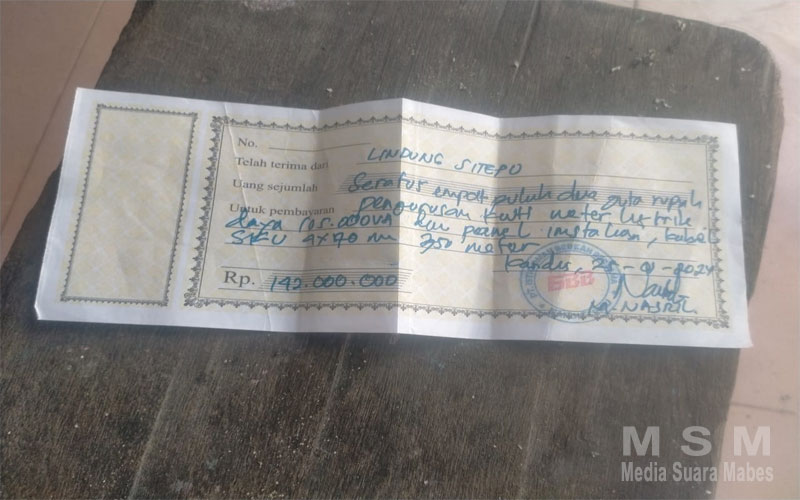 No.
Telah terima dari LINDUNG SITEPU
Uang sejumlah Seratus empat puluh dua juta rupiah
Untuk pembayaran pengurusan kwh meter listrik
daya 105.000VA panel instalian, kabel
4x70 mm 350 meter
Kandis, 25 - - 2024
Rp. 142.000.000
BBB
NASRIL
M S M
Media Suara Mabes